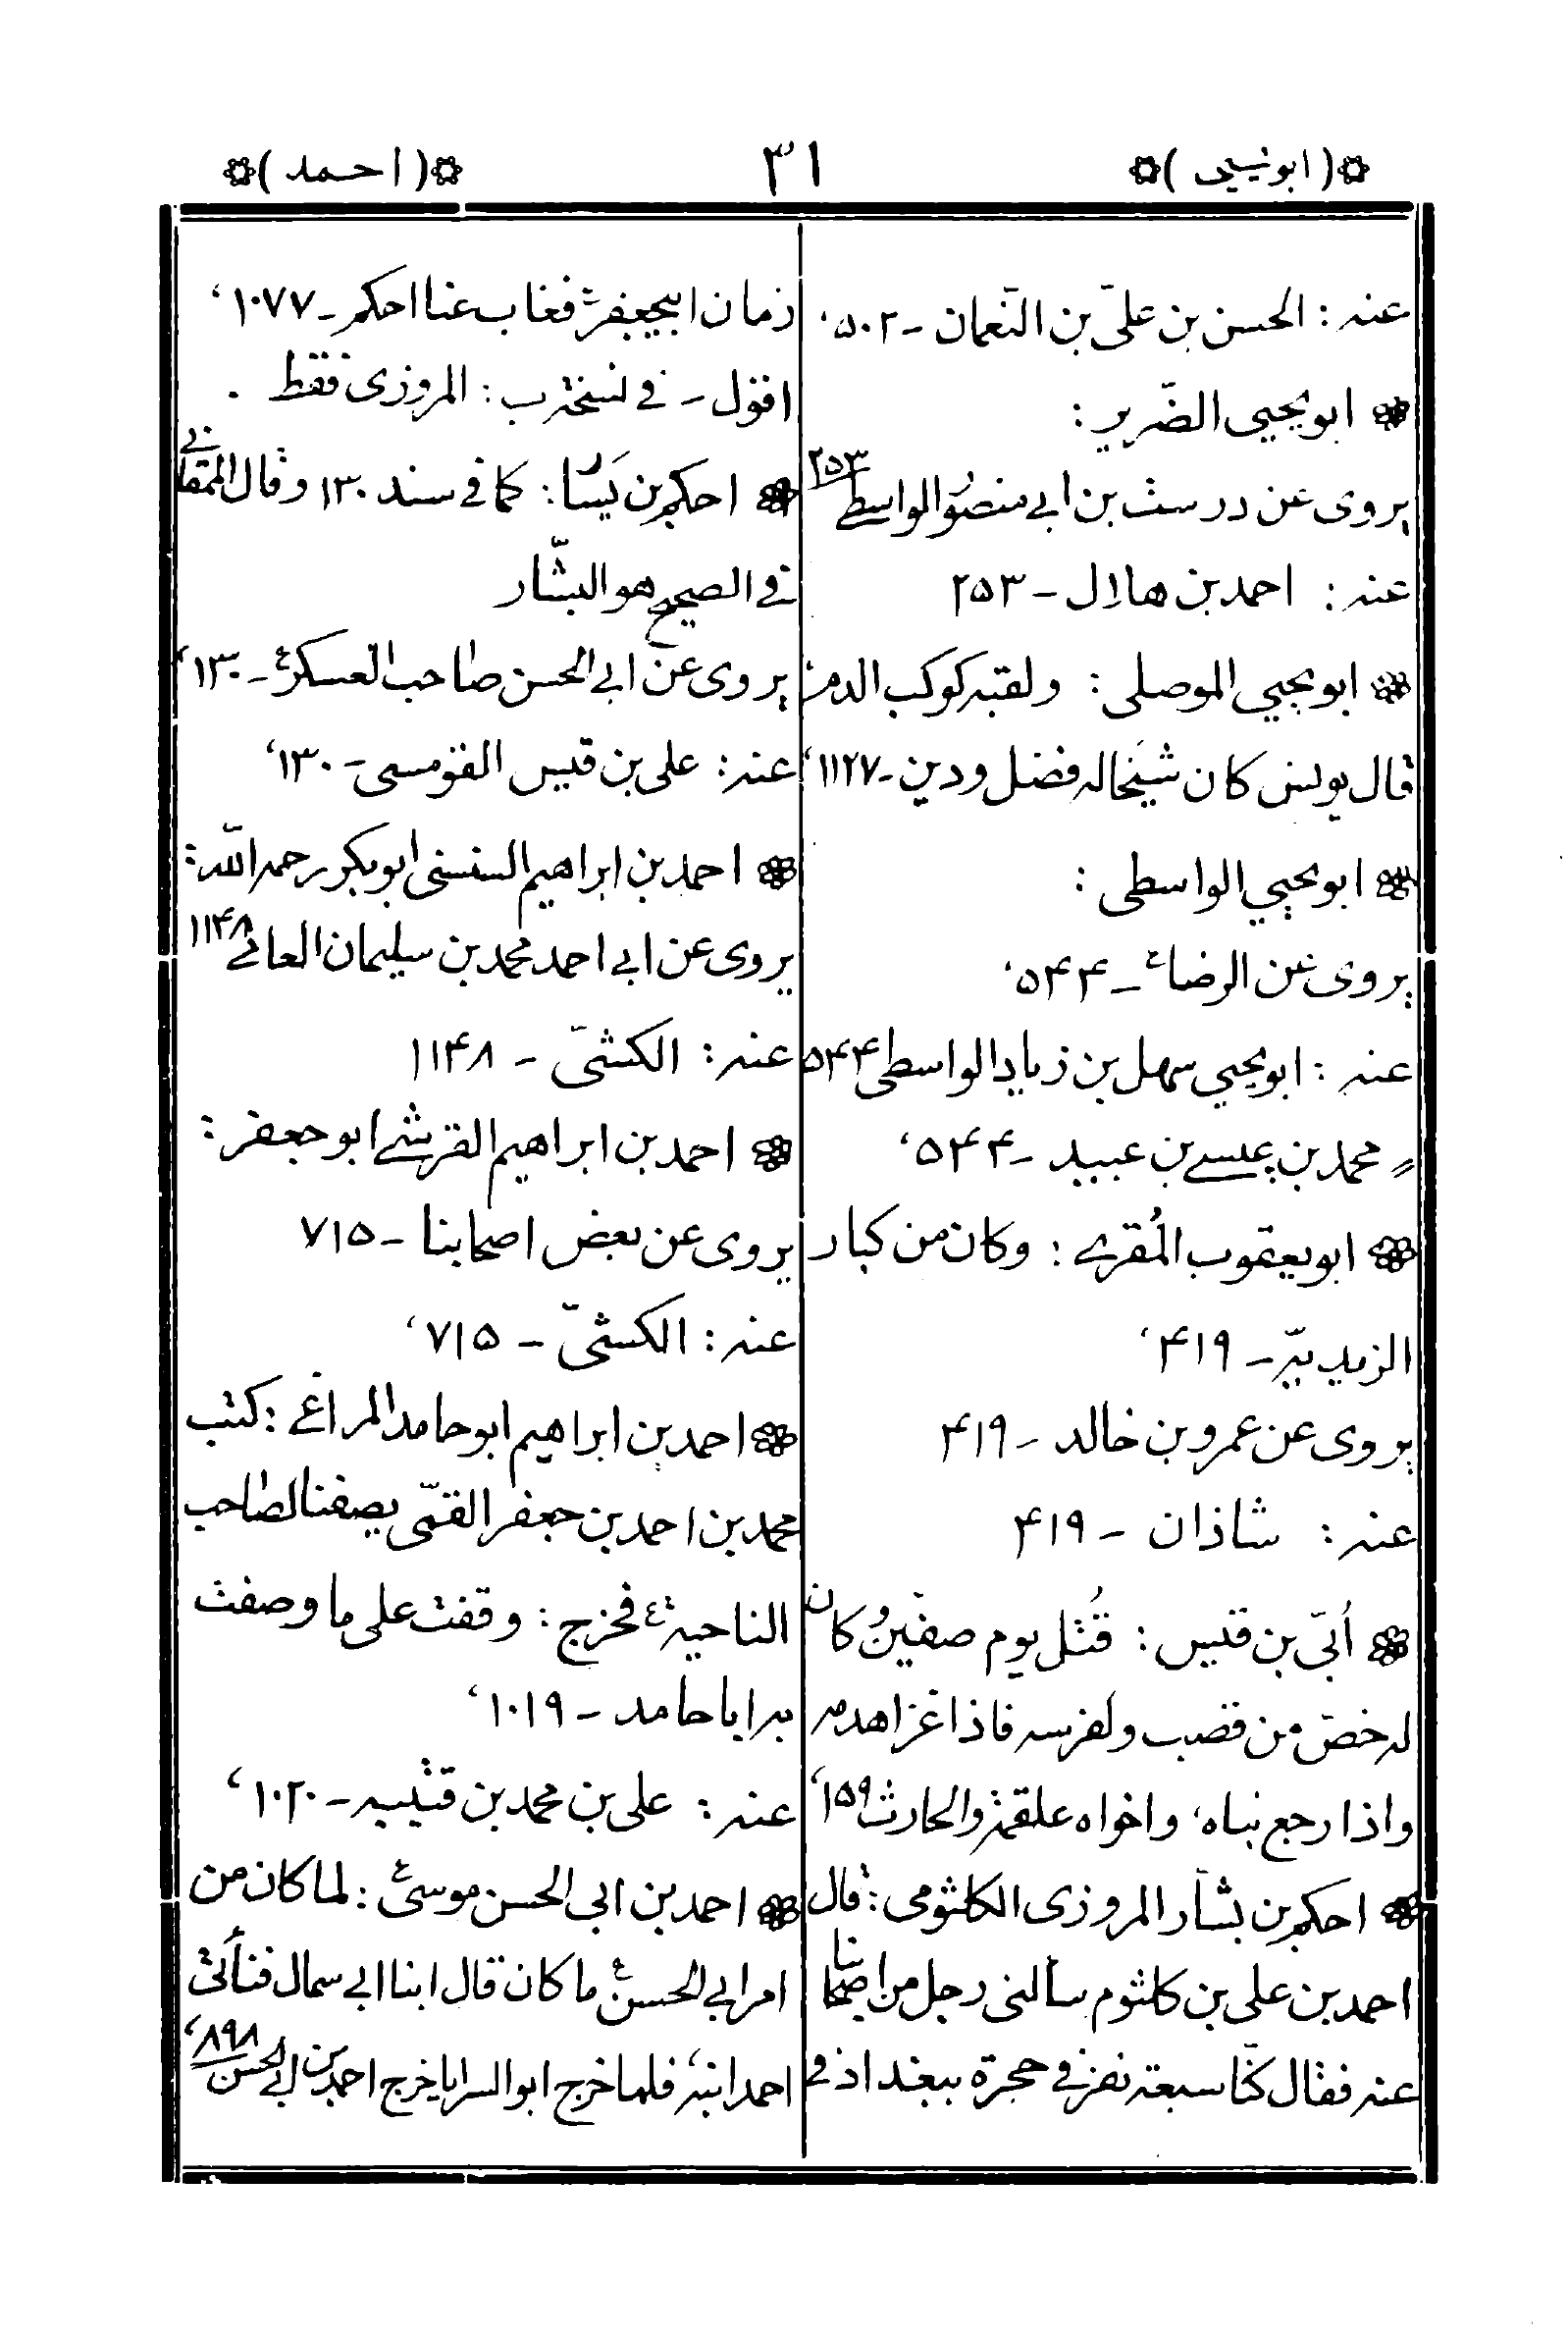 (ابويحيى)
٣١
(احمد)
عنه: الحسن بن علىّ بن النّعمان - ٥٠٢،
ابويحيى الضّرير:
يروى عن درست بن ابى منصور الواسطى ٢٥٣
عنه: احمد بن هلال - ٢٥٣
ابويحيى الموصلى: ولقبه كوكب الدم
قال يونس كان شيخا له فضل ودين - ١١٢٧،
ابويحيى الواسطى:
يروى عن الرضاع - ٥٤٤،
عنه: ابويحيى سهل بن زياد الواسطى ٥٤٤
〃 محمد بن عيسى بن عبيد - ٥٤٤،
ابويعقوب المُقرى: وكان من كبار
الزيديّة - ٤١٩،
يروى عن عمرو بن خالد - ٤١٩
عنه: شاذان - ٤١٩
اُبىّ بن قيس: قُتل يوم صفّين وكان
له خصّ من قصب ولفرسه فاذا غزا هدمه
واذا رجع بناه، واخواه علقمة والحارث ١٥٩،
احكم بن بشار المروزى الكلثومى: قال
احمد بن على بن كلثوم سألنى رجل من اصحابنا
عنه فقال كنّا سبعة نفر فى حجرة ببغداد فى
زمان ابيجعفر فغاب عنا احكم - ١٠٧٧،
اقول - فى نسخة ب: المروزى فقط.
احكم بن يسار: كما فى سند ١٣٠ وقال الممقانى
فى الصحيح هو البشّار
يروى عن ابى الحسن صاحب العسكرع - ١٣٠،
عنه: على بن قيس القومسى - ١٣٠،
احمد بن ابراهيم السنسنى ابوبكر رحمه اللّه:
يروى عن ابى احمد محمد بن سليمان العامى ١١٤٨
عنه: الكشىّ - ١١٤٨
احمد بن ابراهيم القرشى ابوجعفر:
يروى عن بعض اصحابنا - ٧١٥
عنه: الكشىّ - ٧١٥،
احمد بن ابراهيم ابوحامد المراغى: كتب
محمد بن احمد بن جعفر القمّى يصفنا لصاحب
الناحية ع فخرج: وقفت على ما وصفت
به اباحامد - ١٠١٩،
عنه: على بن محمد بن قتيبه - ١٠٢٠،
احمد بن ابى الحسن موسىع: لما كان من
امر ابى الحسن ع ما كان قال ابنا ابى سمال فنأتى
احمد ابنه، فلما خرج ابوالسرايا خرج احمد بن ابى الحسن ٨٩٨،